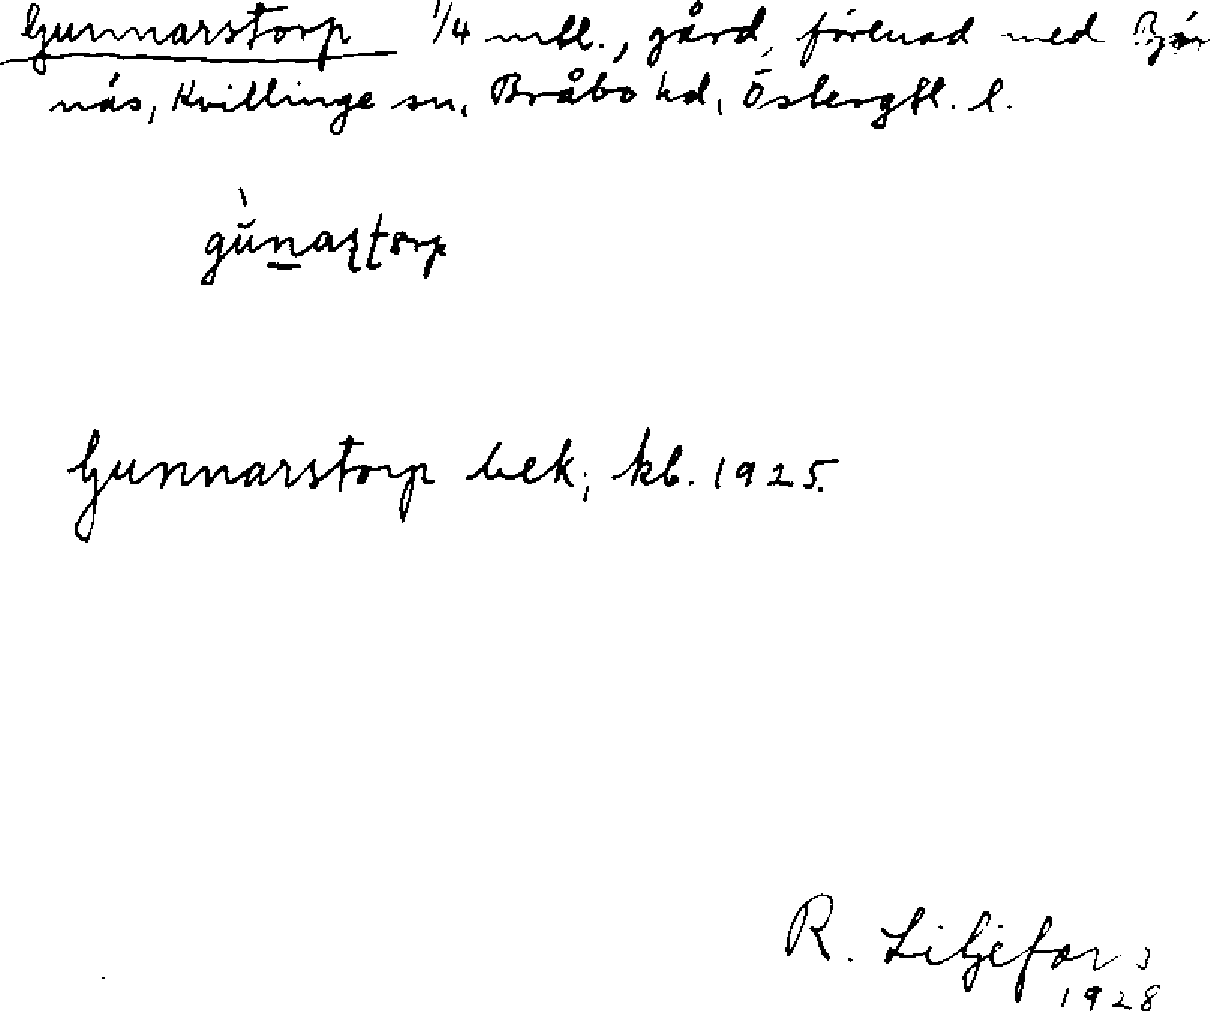 Gunnarstorp 1/4 mtl., gård, förenad med Björ
näs, Kvillinge sn, Bråbo hd, Östergtl. l.
gùnaʂʈorp
Gunnarstorp bek; kb. 1925.
R. Liljefors
1928